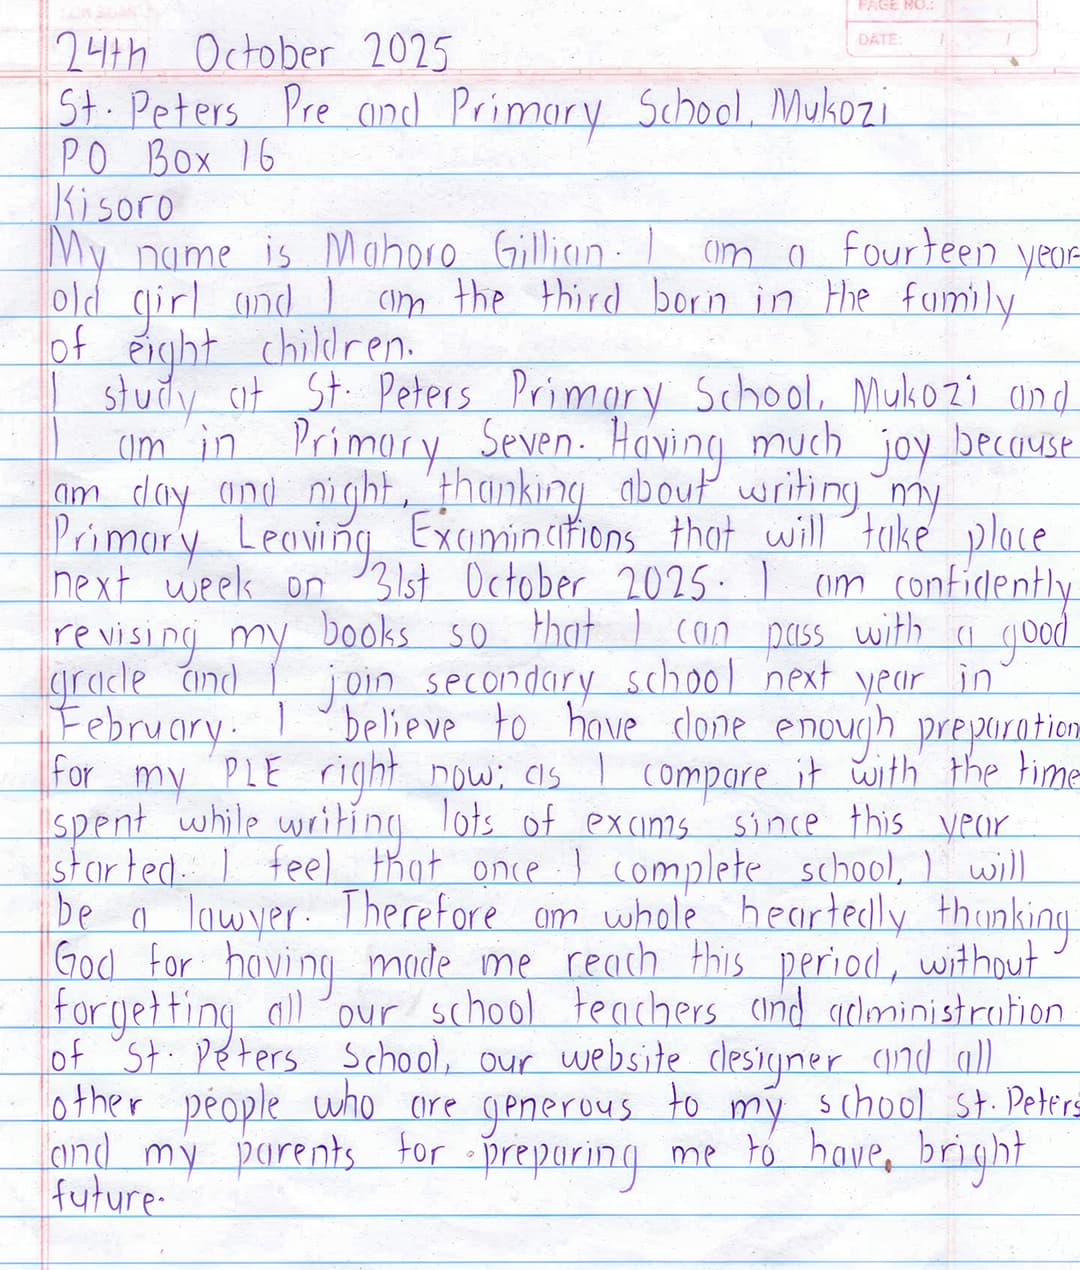 PAGE NO.:
DATE: / /
24th October 2025
St. Peters Pre and Primary School, Mukozi
PO Box 16
Kisoro
My name is Mahoro Gillian. I am a fourteen year
old girl and I am the third born in the family
of eight children.
I study at St. Peters Primary School, Mukozi and
I am in Primary Seven. Having much joy because
am day and night, thanking about writing my
Primary Leaving Examinations that will take place
next week on 31st October 2025. I am confidently
revising my books so that I can pass with a good
grade and I join secondary school next year in
February. I believe to have done enough preparation
for my PLE right now; as I compare it with the time
spent while writing lots of exams since this year
started. I feel that once I complete school, I will
be a lawyer. Therefore am whole heartedly thanking
God for having made me reach this period, without
forgetting all our school teachers and administration
of St. Peters School, our website designer and all
other people who are generous to my school St. Peters
and my parents for preparing me to have bright
future.